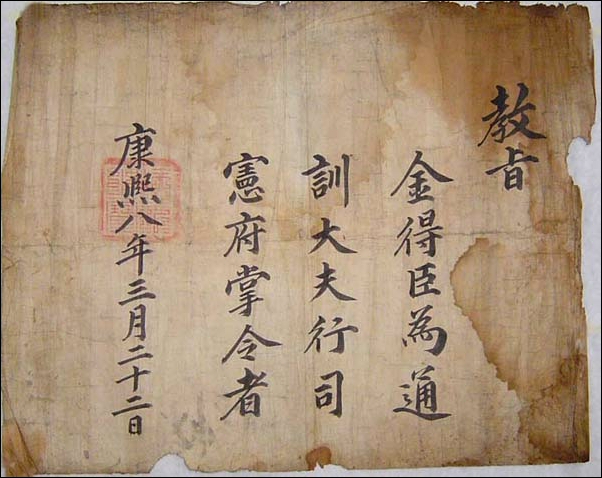 教旨
金得臣為通
訓大夫行司
憲府掌令者
康熙八年三月二十二日